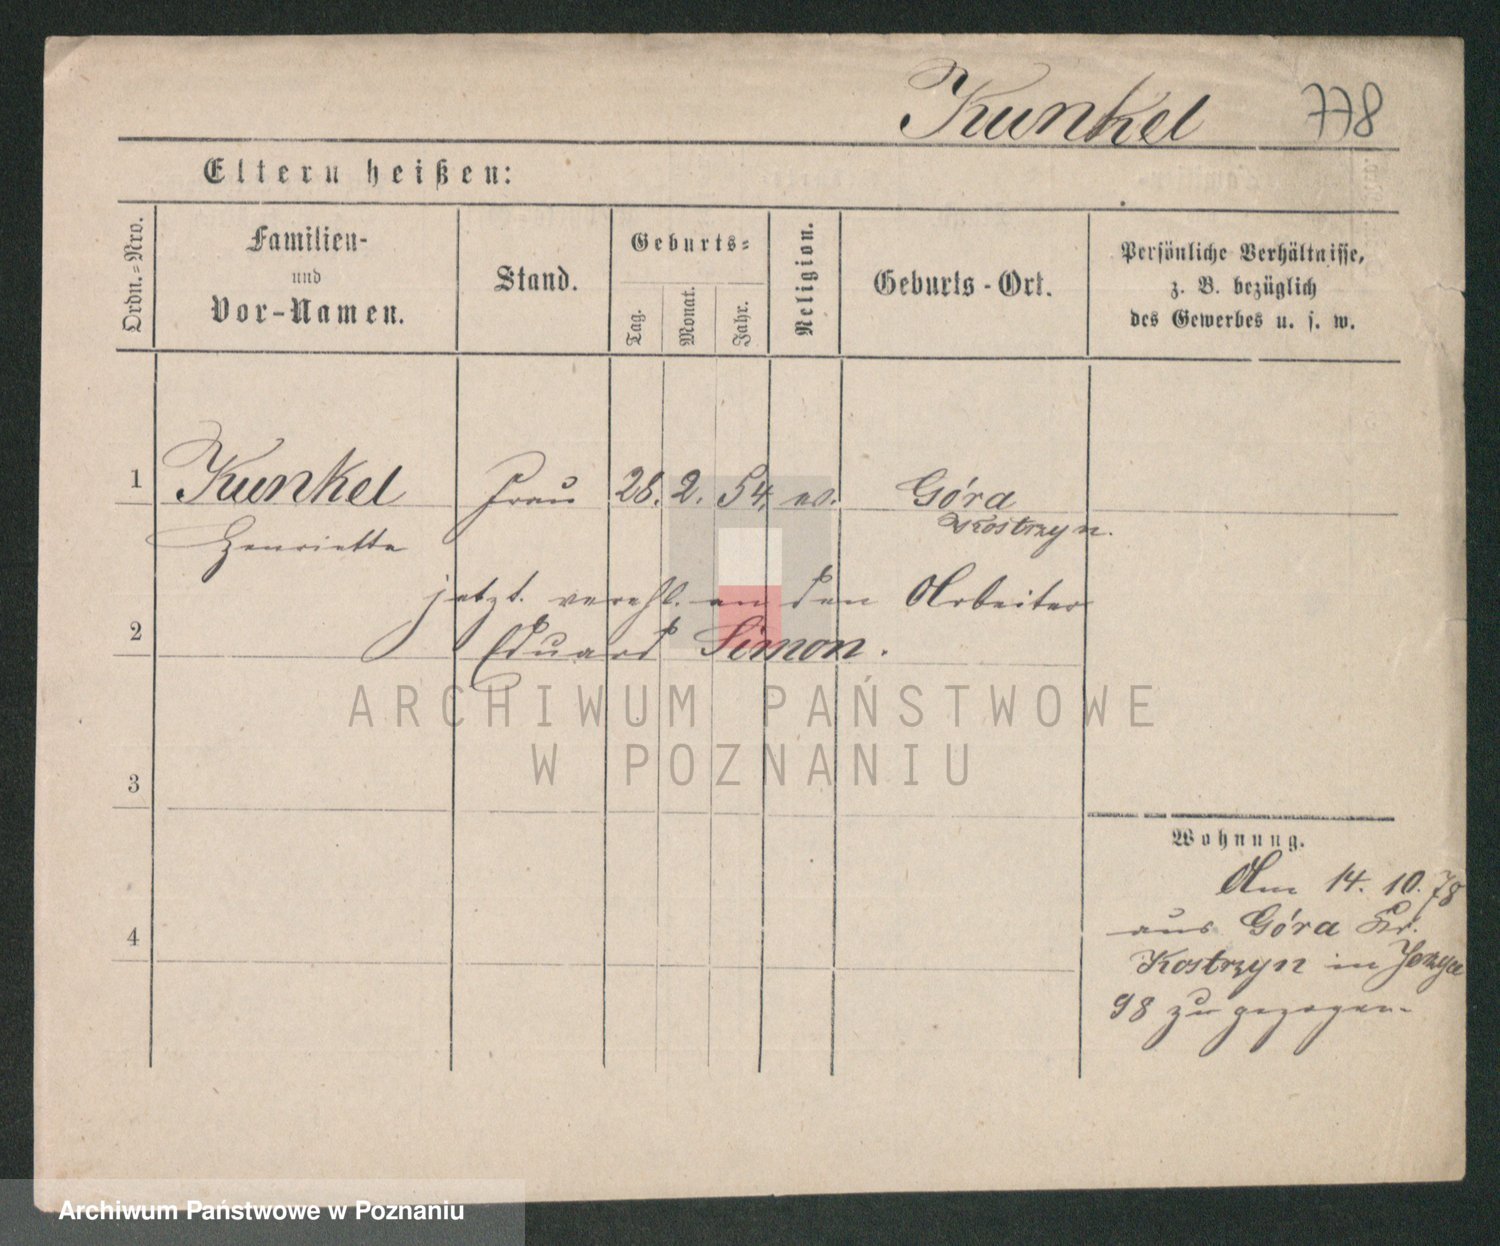 Kunkel 778
Eltern heißen:
Ordn.-Nro.
Familien-
und
Vor-Namen.
Stand.
Geburts-
Tag.
Monat.
Jahr.
Religion.
Geburts-Ort.
Persönliche Verhältnisse,
z. B. bezüglich
des Gewerbes u. s. w.
1 Kunkel Frau 28. 2. 54. ev. Góra
Henriette Kostrzyn.
jetzt. verehl. an den Arbeiter
2 Eduard Simon.
ARCHIWUM PAŃSTWOWE
W POZNANIU
3
Wohnung.
Am 14. 10. 78
aus Góra Kr.
4
Kostrzyn in
98 zugezogen.
Archiwum Państwowe w Poznaniu